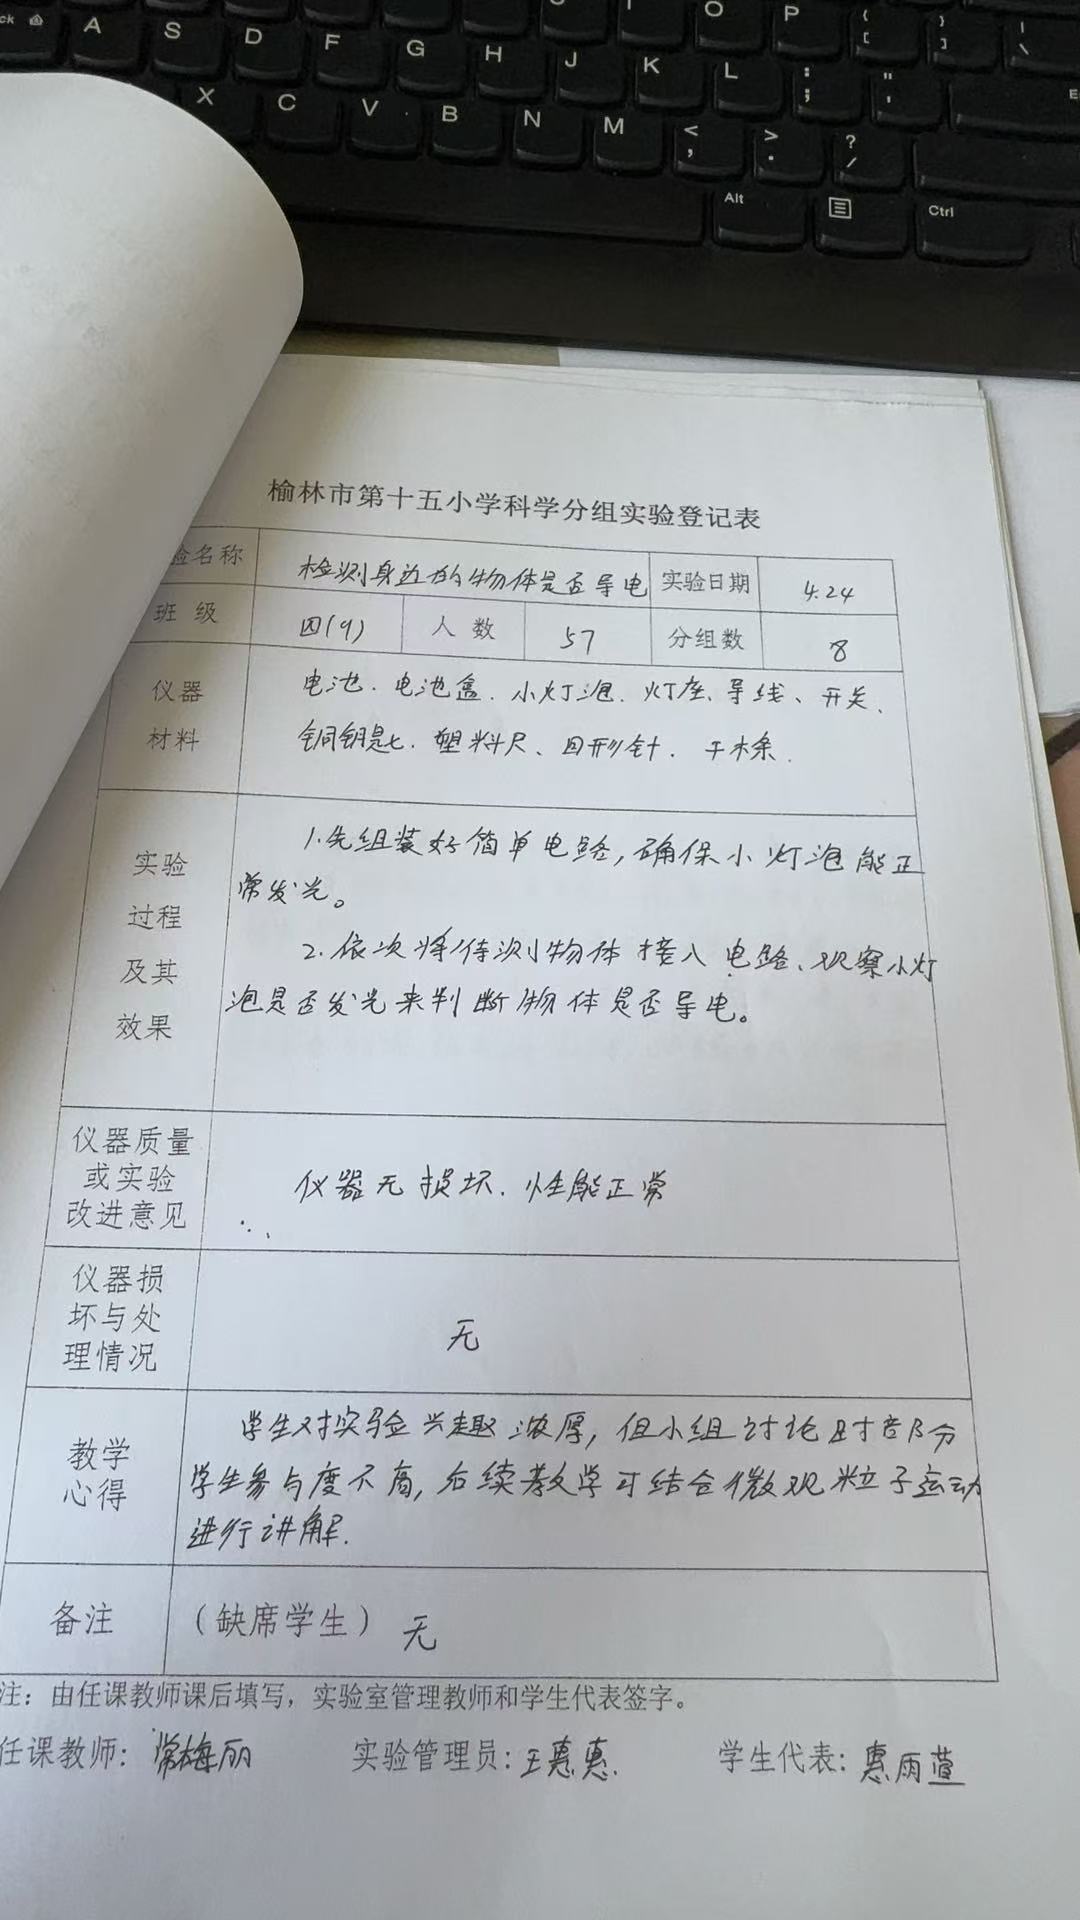 A S D F G H J K L : ; " '
X C V B N M < , > . ? /
O P { [ } ] | \
Alt Ctrl
榆林市第十五小学科学分组实验登记表
验名称 检测身边的物体是否导电 实验日期 4.24
班级 四(9) 人数 57 分组数 8
仪器 电池、电池盒、小灯泡、灯座、导线、开关、
材料 铜钥匙、塑料尺、回形针、干木条.
实验
过程
及其
效果
1.先组装好简单电路,确保小灯泡能正
常发光。
2.依次将待测物体接入电路、观察小灯
泡是否发光来判断物体是否导电。
仪器质量
或实验
改进意见
仪器无损坏、性能正常
仪器损
坏与处
理情况
无
教学
心得
学生对实验兴趣浓厚,但小组讨论时部分
学生参与度不高,后续教学可结合微观粒子运动
进行讲解.
备注 (缺席学生) 无
注:由任课教师课后填写,实验室管理教师和学生代表签字。
任课教师:常梅丽 实验管理员:王惠惠. 学生代表:惠雨萱